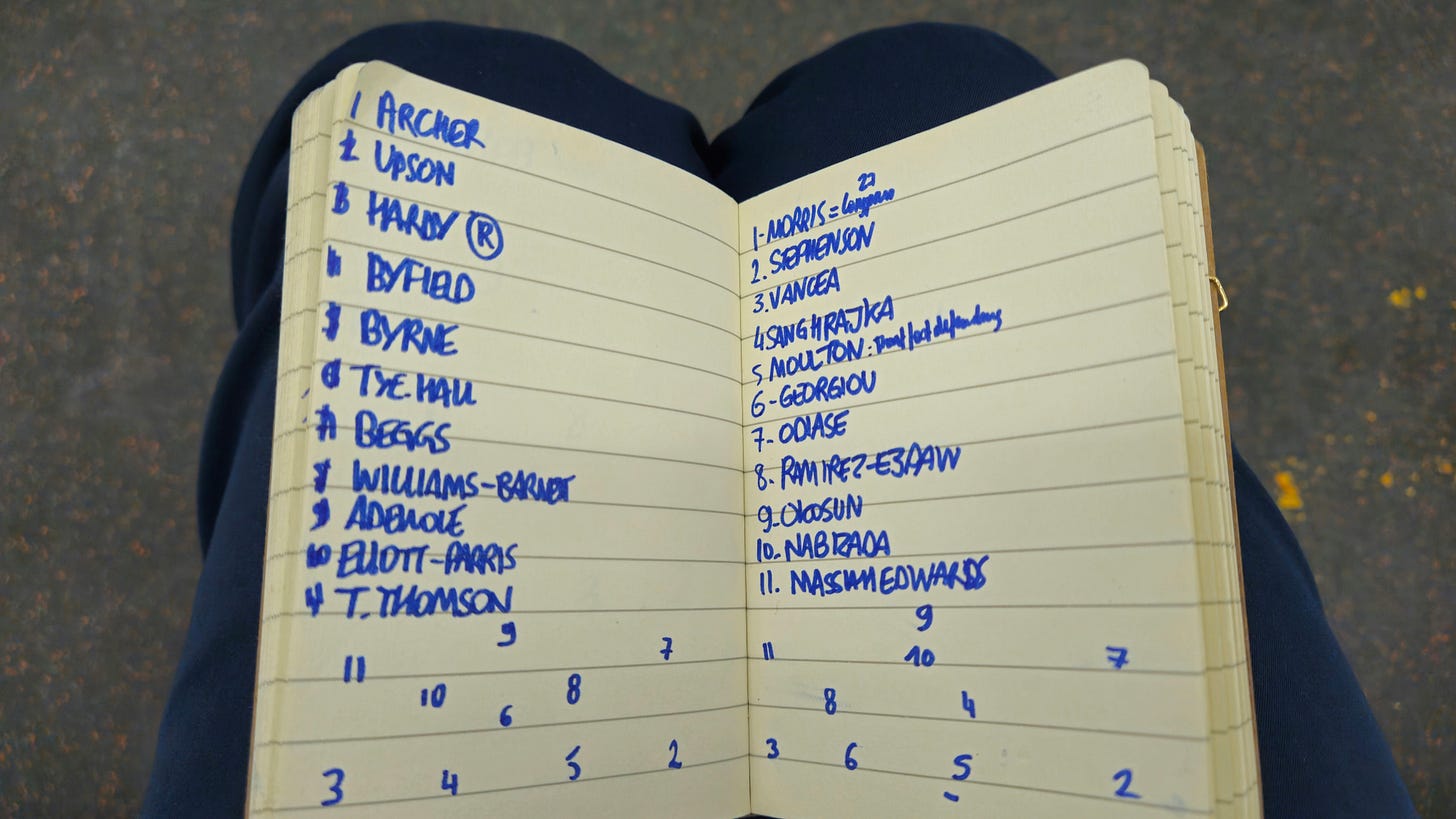 1 ARCHER
2 UPSON
3 HARDY Ⓡ
4 BYFIELD
5 BYRNE
6 TYE-HALL
7 BEGGS
8 WILLIAMS-BARNET
9 ADEWOLE
10 ELLIOTT-PARRIS
11 T. THOMSON
9
11 7
10 8
6
3 4 5 2
27
1-MORRIS =
2. STEPHENSON
3. VANCEA
4 SANGHRAJKA
5 MOULTON: defending
6-GEORGIOU
7-ODIASE
8. RAMIREZ-
9-OKOSUN
10-NABIRADA
11. MASSIAH EDWARDS
9
11 10 7
8 4
3 6 5 2